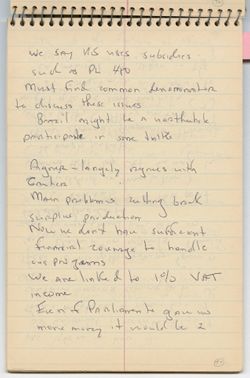 We say US uses subsidies
such as PL 480
Must find common denominator
to discuss these issues
Brazil might be a worthwhile
participate in some talks
Aigner - largely agrees with
Main problems cutting back
surplus production
Now we don't have sufficient
financial coverage to handle
our programs
We are linked to 1% VAT
income
Even if Parliament gave us
more money it would be 2